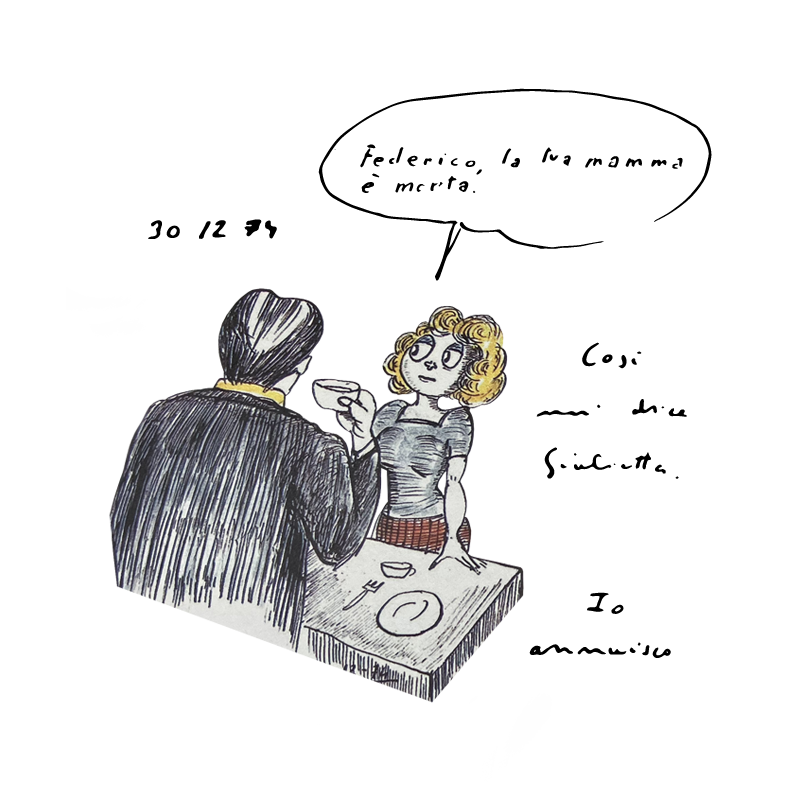 Federico, la tua mamma
è morta.
30 12 74
Così
mi dice
Giulietta.
Io
annuisco